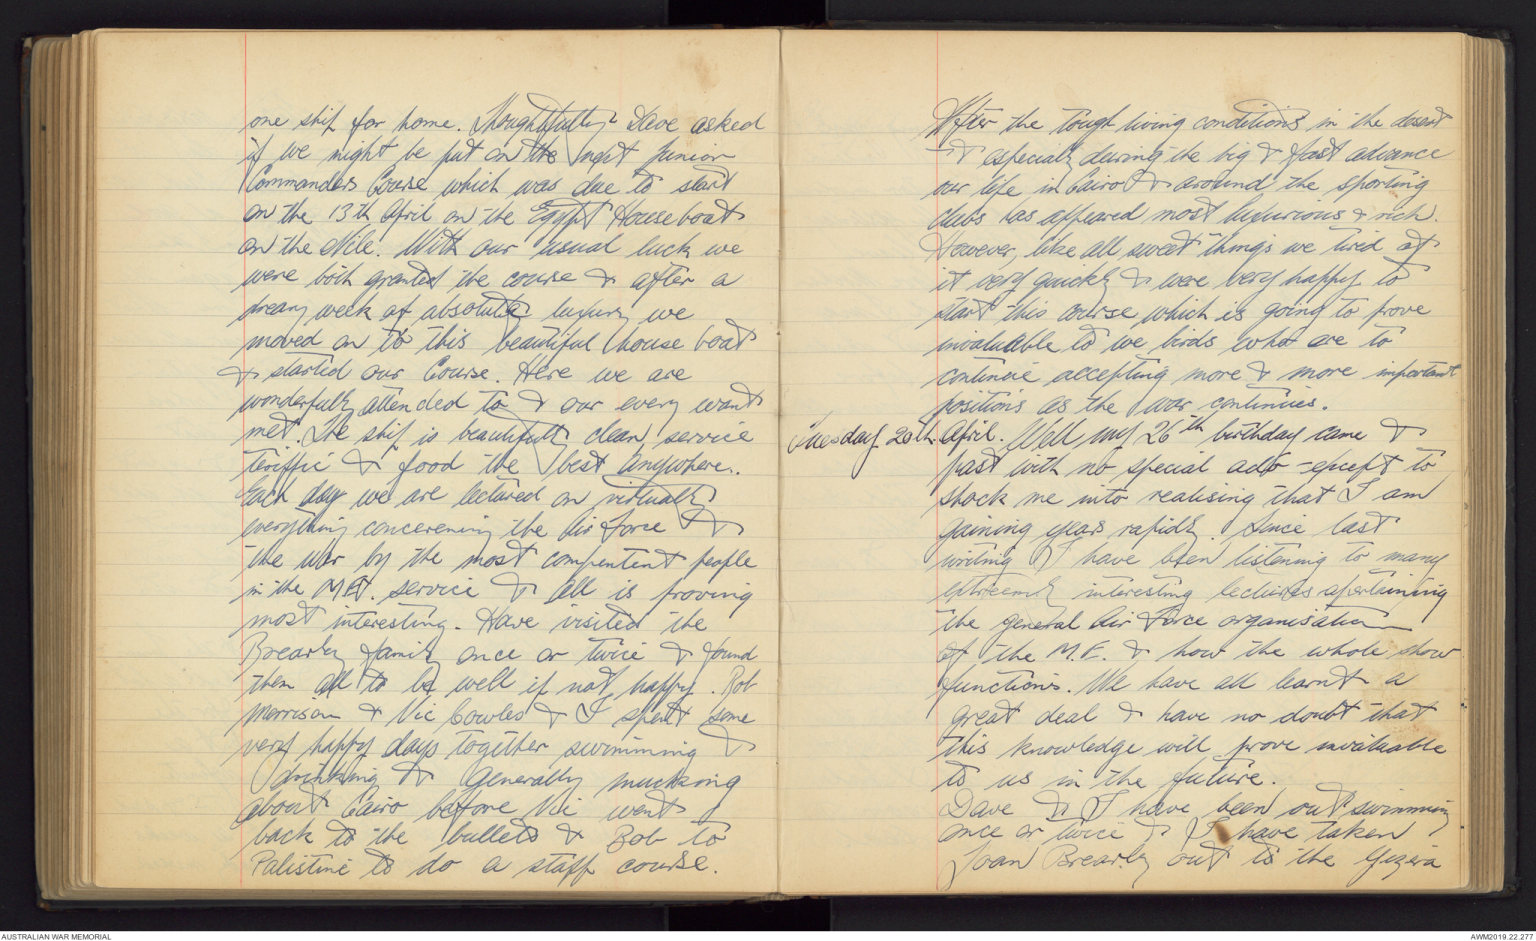 one ship for home. Thoughtfully Dave asked
if we might be put on the next Junior
Commanders Course which was due to start
on the 13th April on the Egypt House boat
on the Nile. With our usual luck we
were both granted the course & after a
dreary week of absolute luxury we
moved on to this beautiful house boat
& started our Course. Here we are
wonderfully attended to & our every want
met. The ship is beautifully clean, service
teriffic & food the best anywhere.
Each day we are lectured on virtually
everything concerening the Air force &
the war by the most compentent people
in the M.E. service & all is proving
most interesting. Have visited the
Brearly family once or twice & found
them all to be well if not happy. Bob
Morrison & Vic Cowles & I spent some
very happy days together swimming &
drinking & generally mucking
about Cairo before Vic went
back to the bullets & Bob to
Palistine to do a staff course.
After the tough living conditions in the desert
& especially during the big & fast advance
our life in Cairo & around the sporting
clubs has appeared most luxurious & rich.
However, like all sweet things we tired of
it very quickly & were very happy to
start this course which is going to prove
invaluable to we birds who are to
continue accepting more & more important
positions as the war continues.
Tuesday 20th. April. Well my 26th birthday came &
past with no special ado - except to
shock me into realising that I am
gaining years rapidly. Since last
writing I have been listening to many
extreemly interesting lectures apertaining
the general Air Force organisation
of the M.E. & how the whole show
functions. We have all learnt a
great deal & have no doubt that
this knowledge will prove invaluable
to us in the future.
Dave & I have been out swimming
once or twice & I have taken
Joan Brearly out to the Gezira
AUSTRALIAN WAR MEMORIAL
AWM2019.22.277